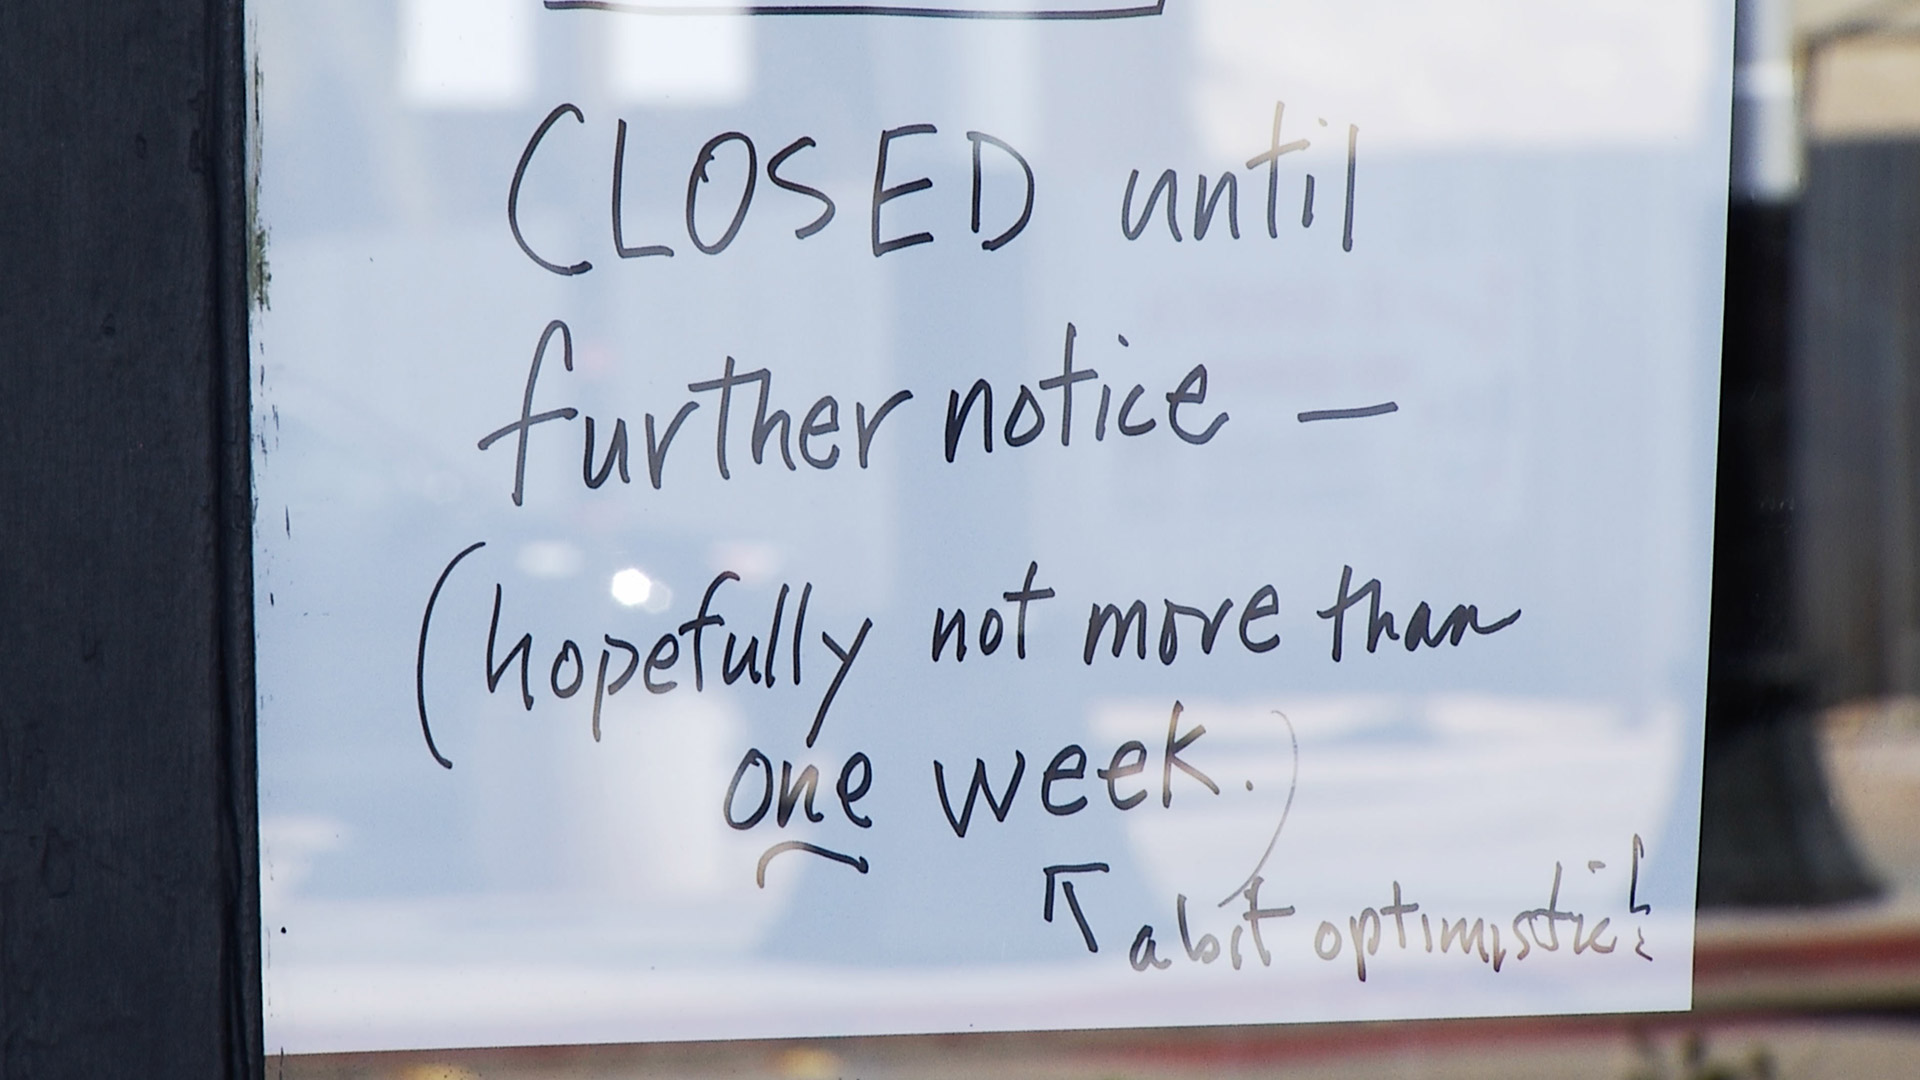 CLOSED until
further notice —
(hopefully not more than
one week.)
a bit optimistic!